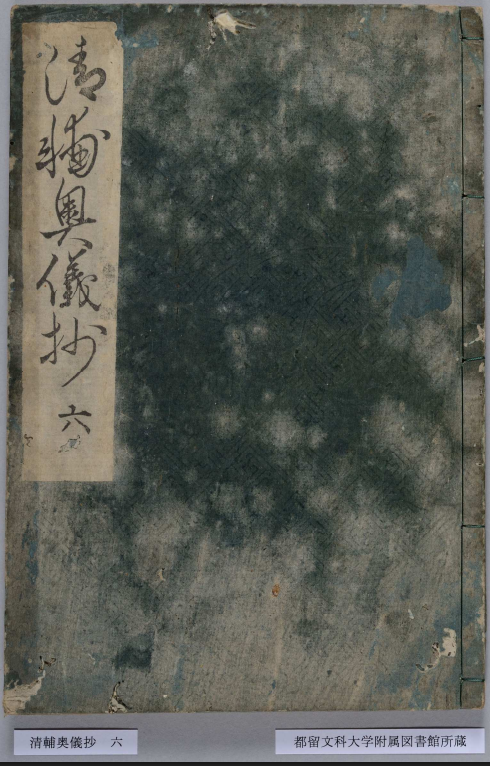 清輔奥儀抄 六
清輔奥儀抄 六
都留文科大学附属図書館所蔵